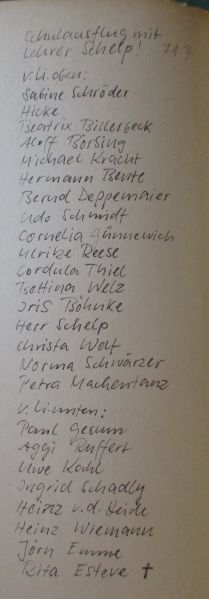 Schulausflug mit
Lehrer Schelp! 71?
v.li.oben:
Sabine Schröder
Hicke
Beatrix Billerbeck
Aloff Börsing
Michael Kracht
Hermann Beste
Bernd Deppemaier
Udo Schmidt
Cornelia Günnewich
Ulrike Reese
Cordula Thiel
Bettina Welz
Iris Böhnke
Herr Schelp
Christa Wolf
Norma Schwärzer
Petra Machentanz
v.li.unten:
Paul Gesum
Aggi Ruffert
Uwe Kahl
Ingrid Schadly
Heinz v.d. Heide
Heinz Wiemann
Jörn Emme
Rita Esteve †